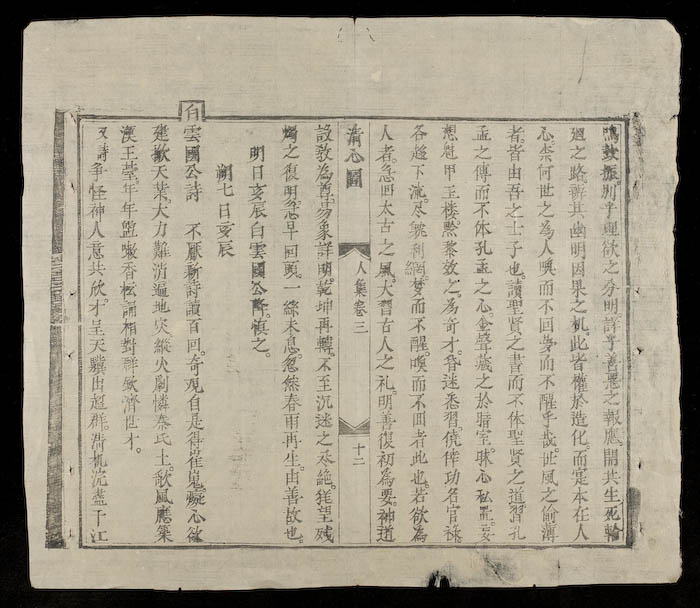 鳴鼓振則乎理欲之分明詳乎善惡之報應開其生死輪
廻之路辨其幽明因果之机此皆權於造化而寔本在人
心柰何世之為人喚而不回夢而不醒乎哉世風之偷薄
者皆由吾之士子也讀聖賢之書而不体聖賢之道習孔
孟之傳而不体孔孟之心金聲藏之於暗室昧心私罡妄
想魁甲玉楼㸃黎效之為奇才昏迷悉習僥倖功名官祿
各趨下流尽貌利網夢而不醒喚而不囬者此也若欲為
人者急囬太古之風大習古人之礼明善復初為要神道
清心圖 人集卷三 十二
設教為首易象詳明乾坤再轉不至沉迷之丞絶狂望殘
燭之復明忽早回頭一線未息忽然春雨再生由善故也
明日亥辰白雲國公降慎之
朔七日亥辰
白雲國公詩 不厭新詩讀百回奇观自是得崔嵬癡心欲
建擎天業大力難消遍地灾縱火劇憐秦氏土歌風應築
漢王臺年年盤嗽香松誦相對群欽濟世才
又詩爭怪神人意共欣才呈天驥出超群清机沉盡千江